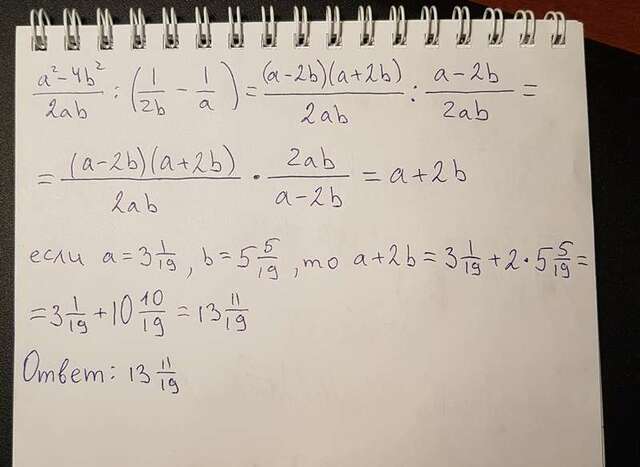 a²-4b²/2ab : (1/2b - 1/a) = (a-2b)(a+2b)/2ab : a-2b/2ab =
= (a-2b)(a+2b)/2ab · 2ab/a-2b = a+2b
если a = 3 1/19, b = 5 5/19, то a+2b = 3 1/19 + 2 · 5 5/19 =
= 3 1/19 + 10 10/19 = 13 11/19
Ответ: 13 11/19